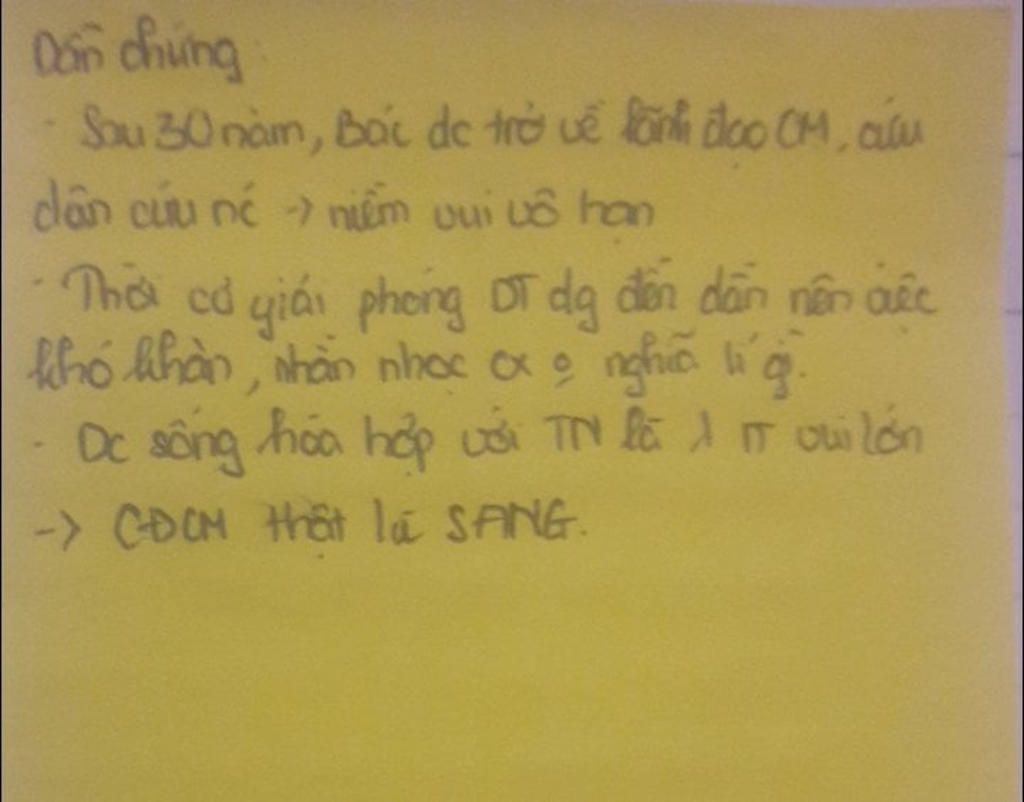 Dẫn chứng:
- Sau 30 năm, Bác dc trở về lãnh đạo CM, cứu
dân cứu nc -> niềm vui vô hạn
- Thời cơ giải phóng DT dg đến dần nên
khó khăn, nhằn nhọc cx nghĩa lí gì.
- Dc sống hòa hợp với TN là vui lớn
-> CĐCM thật là SANG.